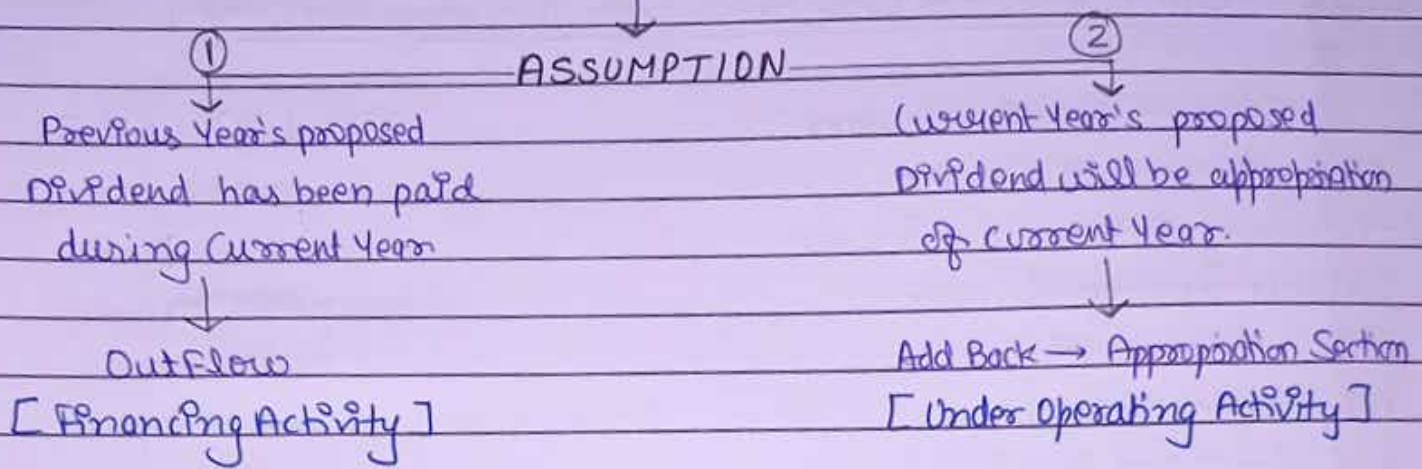 ① ASSUMPTION ②
Previous Year's proposed
Dividend has been paid
during Current Year
OutFlow
[Financing Activity]
Current Year's proposed
Dividend will be appropriation
of current Year.
Add Back → Appropriation Section
[Under Operating Activity]